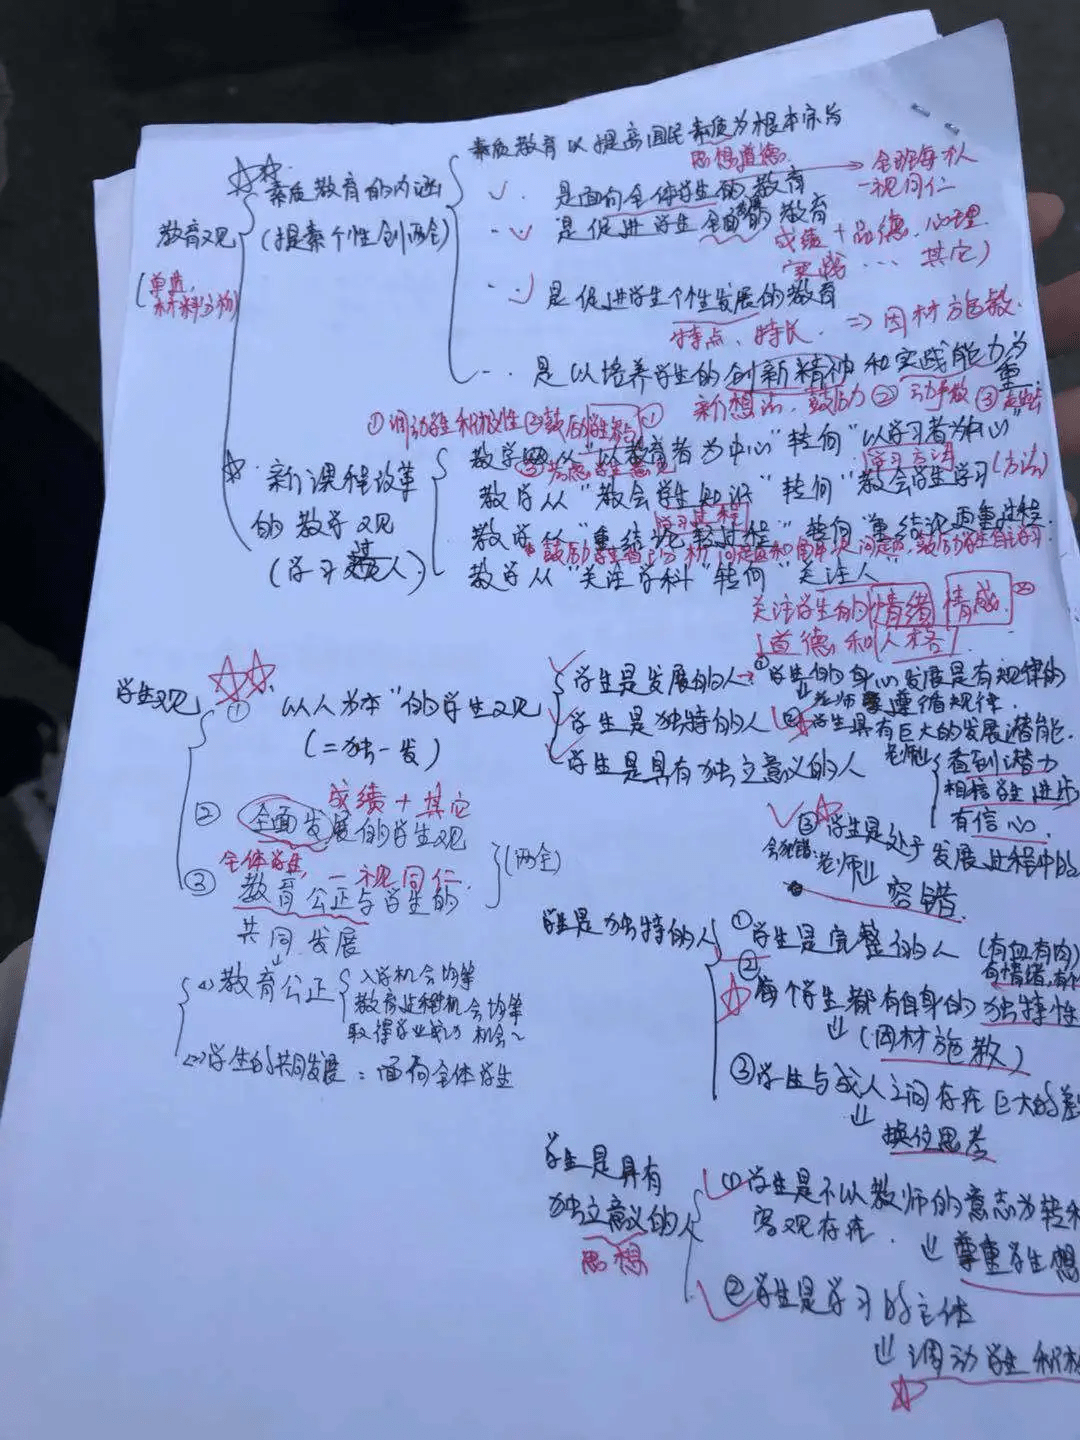 素质教育以提高国民素质为根本宗旨
思想道德
全班每个人
一视同仁
素质教育的内涵
是面向全体学生的教育
教育观
(提素个性创两全)
是促进学生全面发展的教育
成绩+品德、心理
实践... 其它)
(单选,
材料分析)
是促进学生个性发展的教育
特点、特长. ⇒因材施教.
是以培养学生的创新精神和实践能力为重.
新想法、鼓励 ②动手做 ③
①调动学生积极性 ②鼓励学生参与
教学从“以教育者为中心”转向“以学习者为中心”
新课程改革
学习方法
教学从“教会学生知识”转向“教会学生学习 (方法)
的教学观
学习过程
教学从“重结论轻过程”转向“重结论更重过程.
(学习过人)
教学从“关注学科”转向“关注人”
关注学生的情绪 情感.
道德和人格
学生观
① 以人为本”的学生观
(二独一发)
学生是发展的人→①学生的身心发展是有规律的
⇓老师 遵循规律.
学生是独特的人
②学生具有巨大的发展潜能.
学生是具有独立意义的人
老师⇓
看到潜力
相信学生进步
有信心.
成绩+其它
② 全面发展的学生观
③学生是处于发展过程中的
会犯错.
老师⇓
容错
全体学生, 一视同仁.
(两全)
③ 教育公正与学生的
共同发展
学生是独特的人
①学生是完整的人 (有血有肉)
有情绪,有
②
每个学生都有自身的独特性
⇓(因材施教)
③学生与成人之间存在巨大的差
⇓
换位思考
(1)教育公正
入学机会均等
教育过程机会均等
取得学业成功机会~
(2)学生的共同发展:面向全体学生
学生是具有
独立意义的人
思想
①学生是不以教师的意志为转移
客观存在.
⇓尊重学生想
②学生是学习的主体
⇓调动学生积极